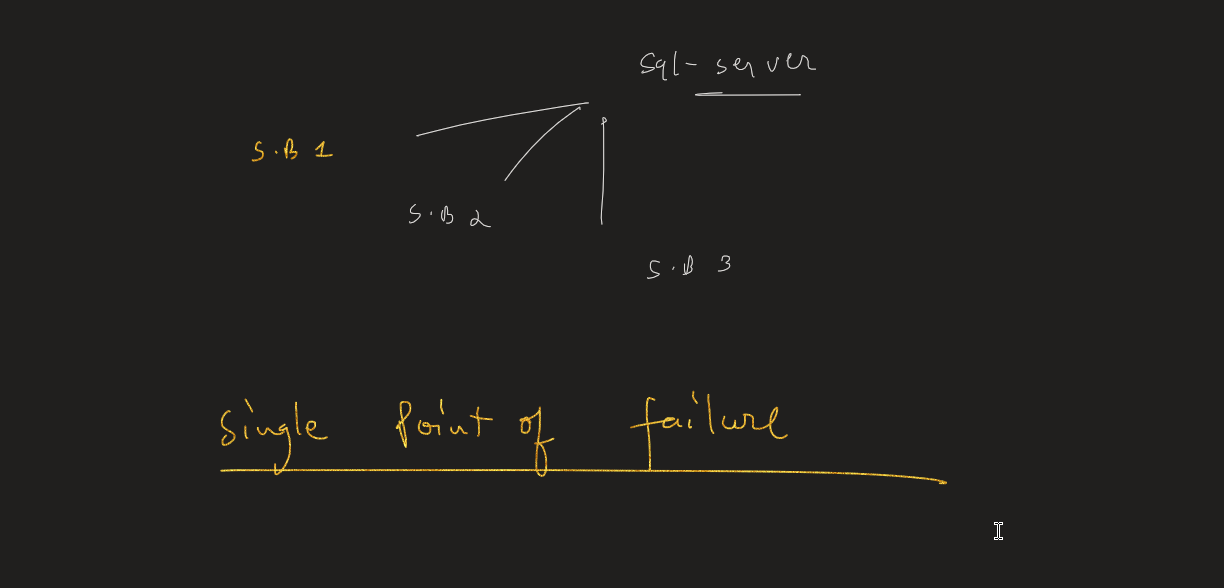 Sql-server
S.B 1
S.B 2
S.B 3
Single Point of failure